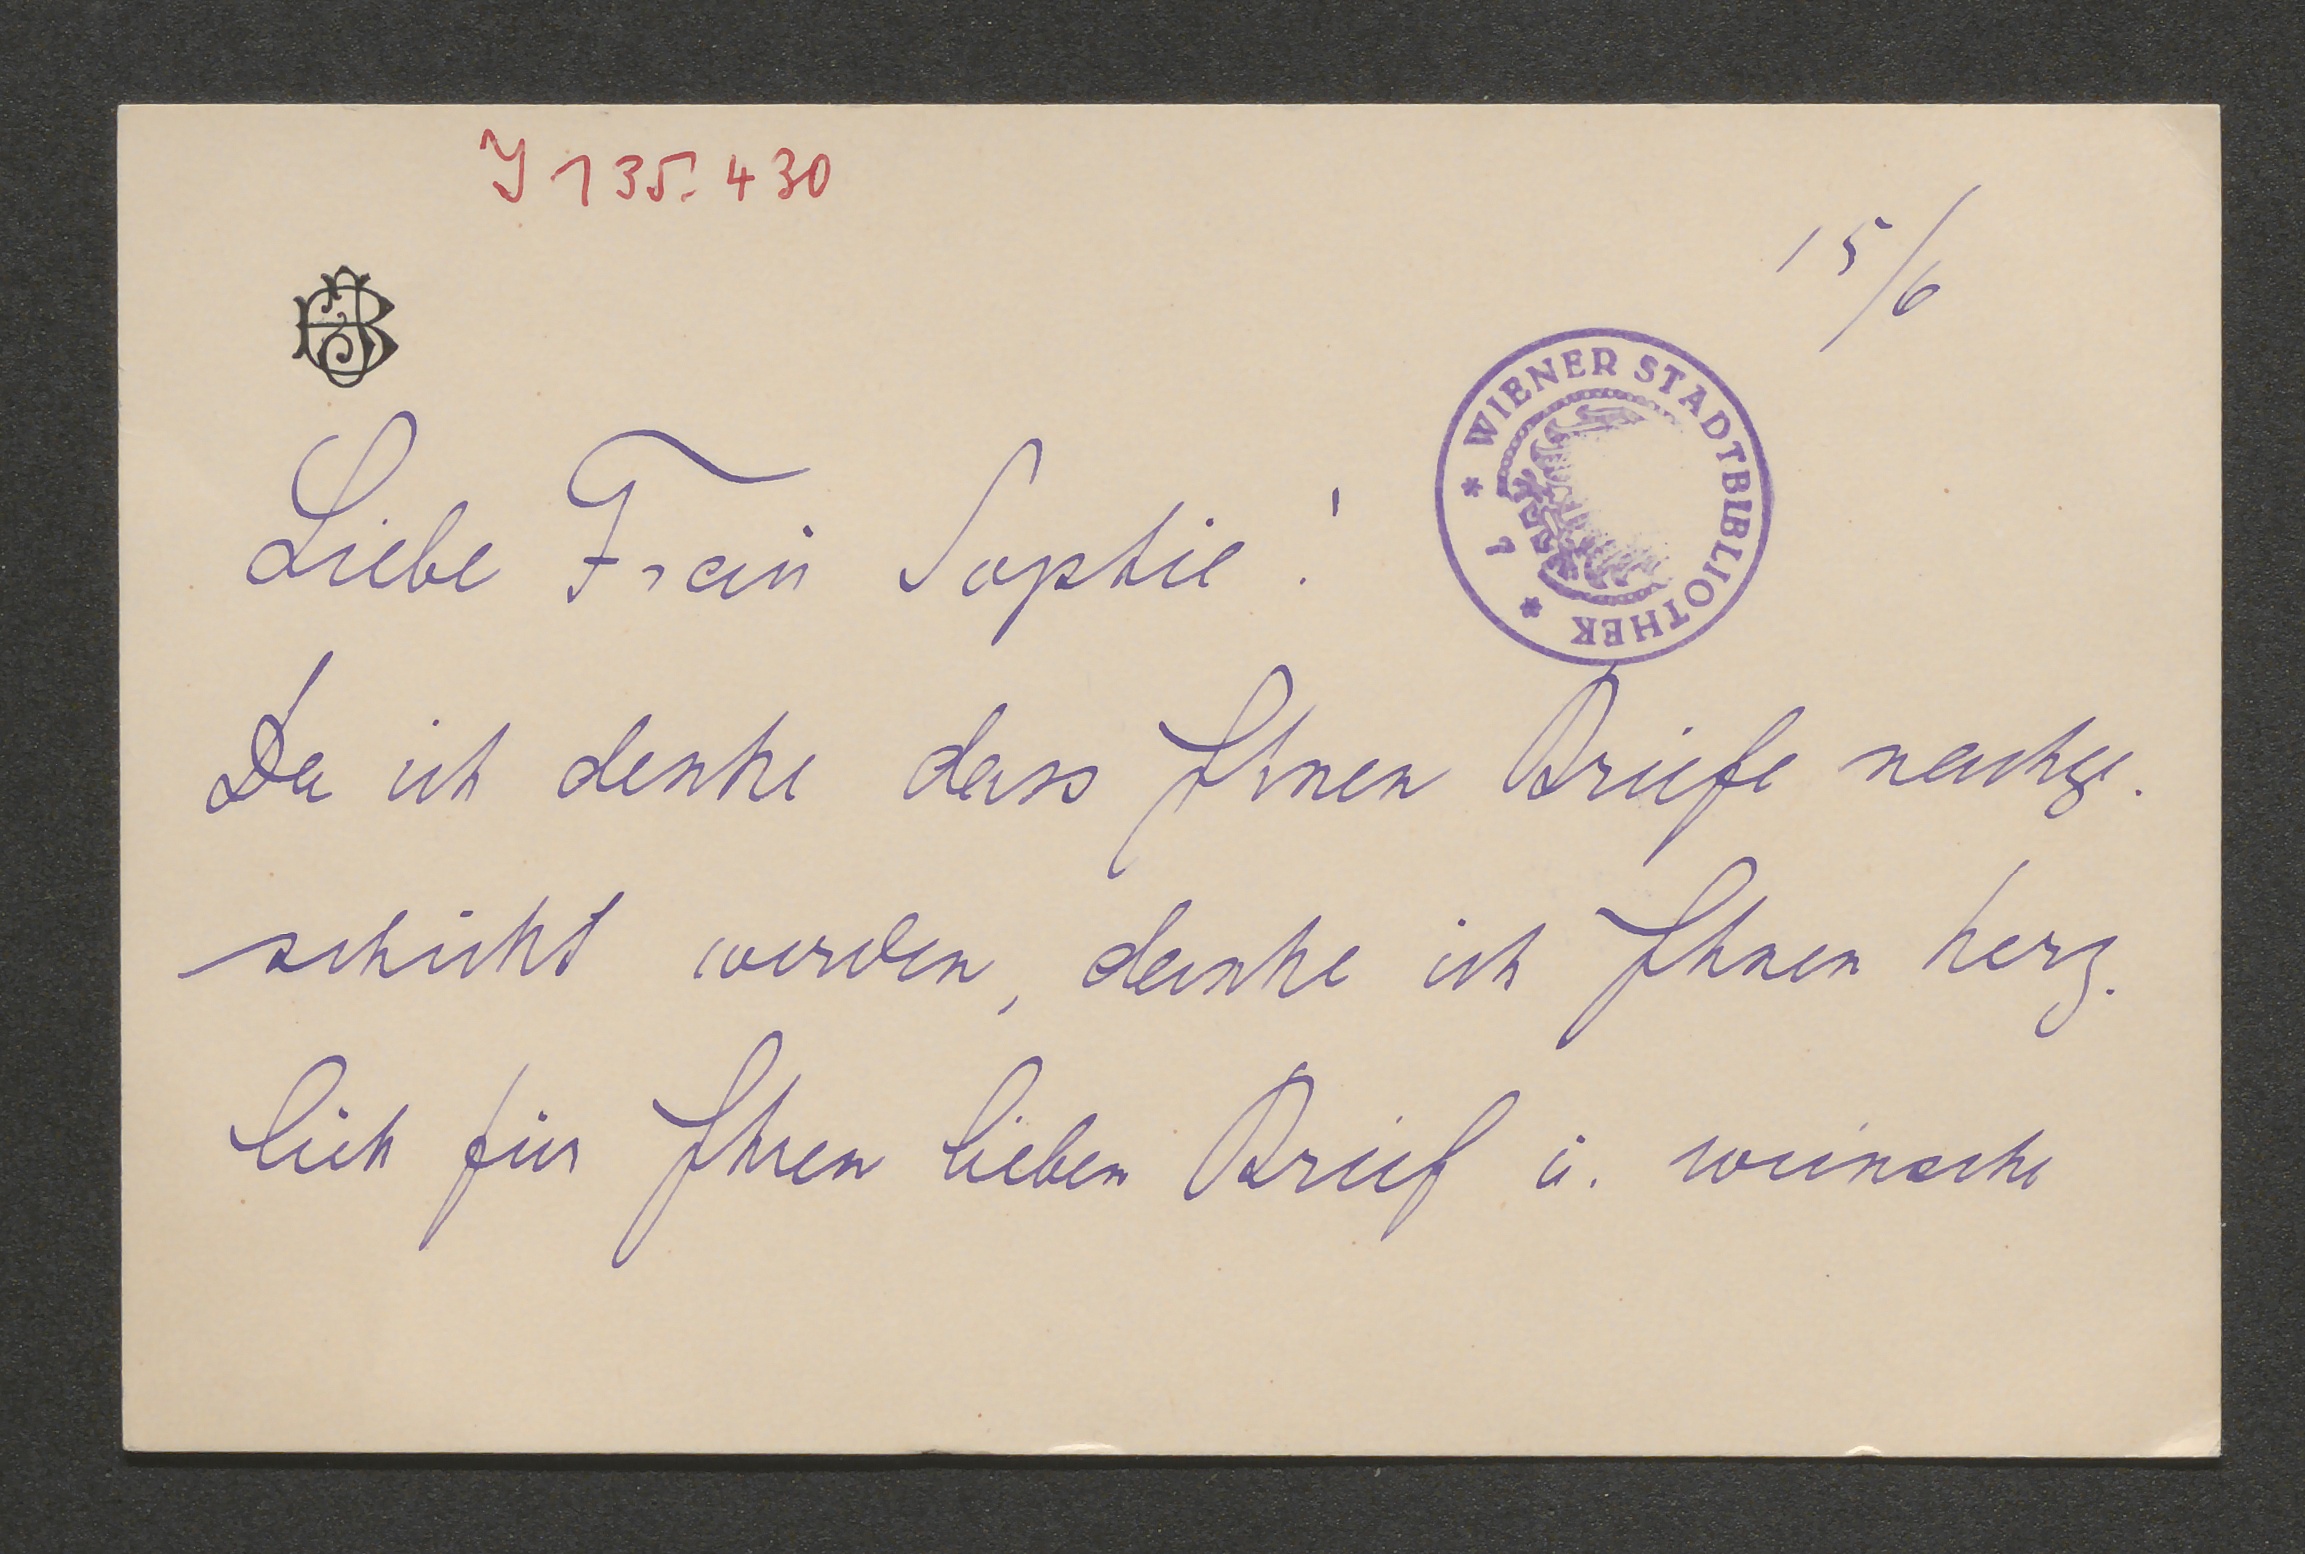 J 135.430
15/6
WIENER STADTBIBLIOTHEK
Liebe Frau Sophie!
Da ich denke dass Ihnen Briefe nachge-
schickt werden, danke ich Ihnen herz-
lich für Ihren lieben Brief u. wünsche